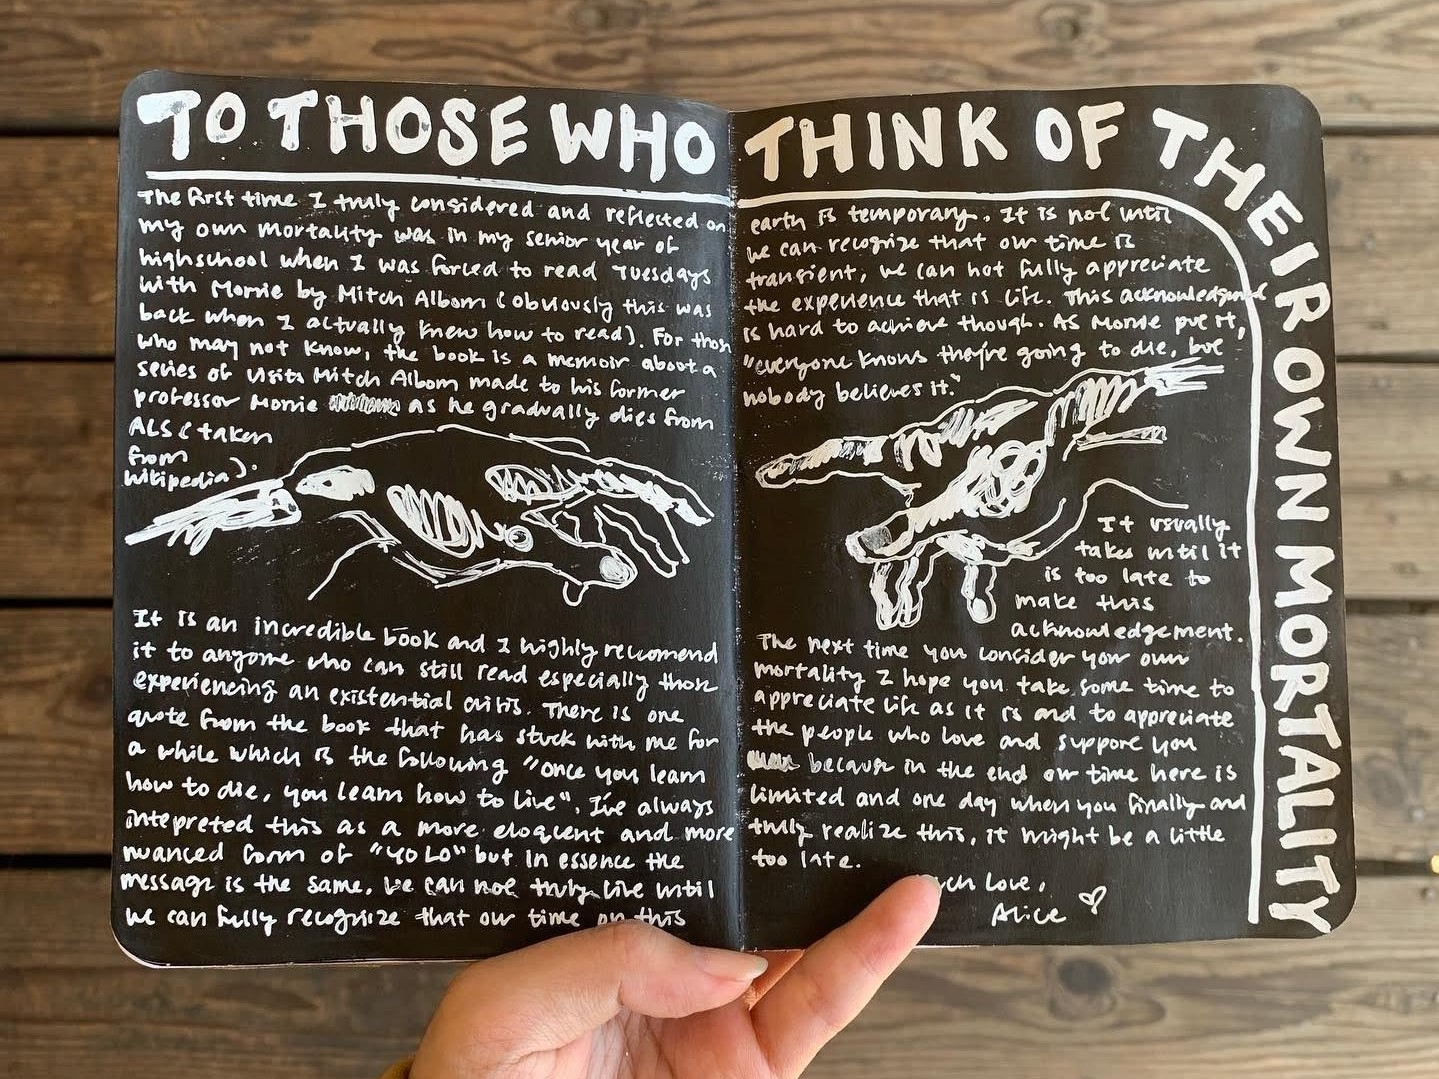 TO THOSE WHO THINK OF THEIR OWN MORTALITY
The first time I truly considered and reflected on
my own mortality was in my senior year of
highschool when I was forced to read Tuesdays
with Morrie by Mitch Albom (obviously this was
back when I actually knew how to read). For those
who may not know, the book is a memoir about a
series of visits Mitch Albom made to his former
professor Morrie as he gradually dies from
ALS (taken
from
Wikipedia).
It is an incredible book and I highly reccomend
it to anyone who can still read especially those
experiencing an existential crisis. There is one
quote from the book that has stuck with me for
a while which is the following "once you learn
how to die, you learn how to live". I've always
intepreted this as a more eloquent and more
nuanced form of "YOLO" but in essence the
message is the same. We can not truly live until
we can fully recognize that our time on this
earth is temporary. It is not until
we can recognize that our time is
transient, we can not fully appreciate
the experience that is life. This acknowledgement
is hard to achieve though. As Morrie put it,
"everyone knows they're going to die, but
nobody believes it."
It usually
takes until it
is too late to
make this
acknowledgement.
The next time you consider your own
mortality I hope you take some time to
appreciate life as it is and to appreciate
the people who love and support you
because in the end our time here is
limited and one day when you finally and
truly realize this, it might be a little
too late.
Love,
Alice